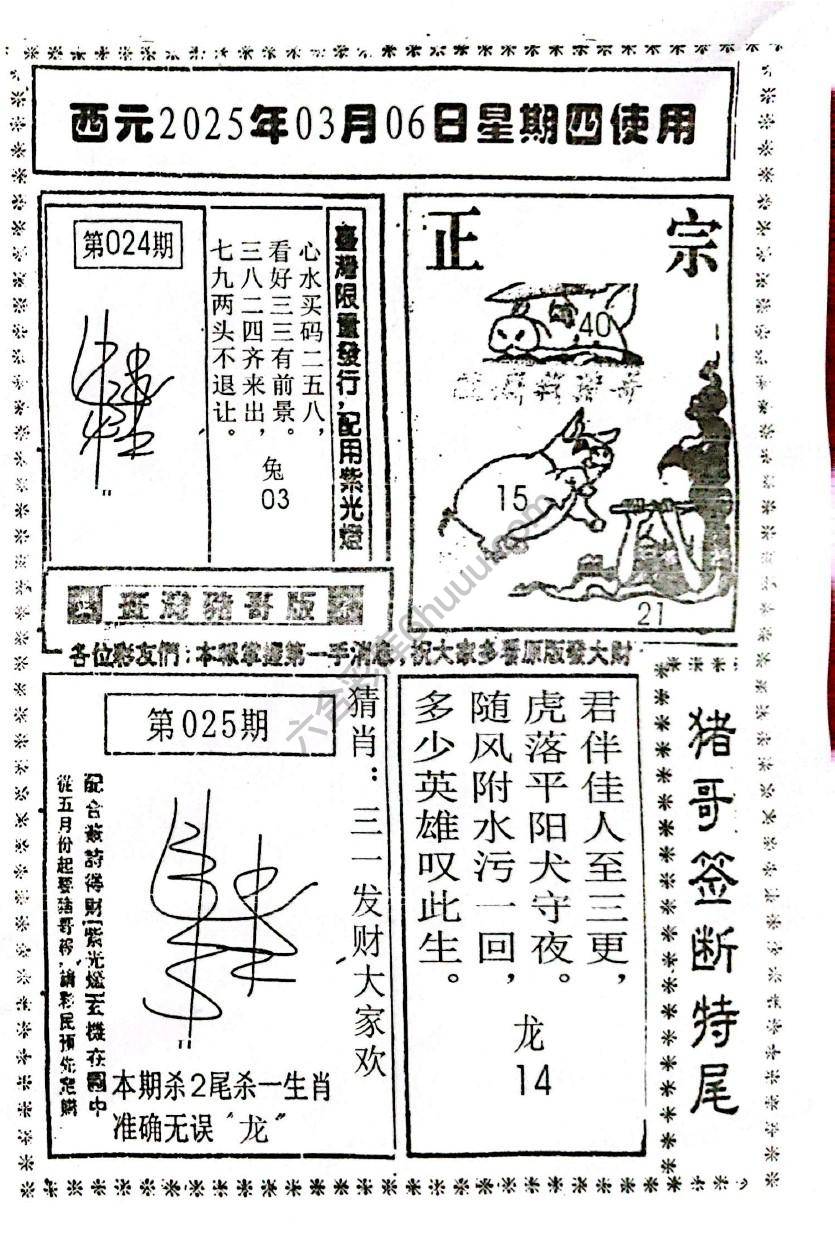 西元2025年03月06日星期四使用
第024期
心水买码二五八，
看好三三有前景。
三八二四齐来出，
七九两头不退让。
兔
03
臺灣限量發行，配用紫光燈
正宗
40
15
21
臺灣豬哥版
各位彩友們：本報掌握第一手消息，祝大家多看原版發大財
第025期
猜肖：三一发财大家欢
配合籤詩得財紫光燈玄機在圖中
從五月份起要豬哥報，請彩民預先定購
本期杀2尾杀一生肖
准确无误“龙”
君伴佳人至三更，
虎落平阳犬守夜。
随风附水污一回，
多少英雄叹此生。
龙
14
猪哥签断特尾
六合彩库6huuu.com